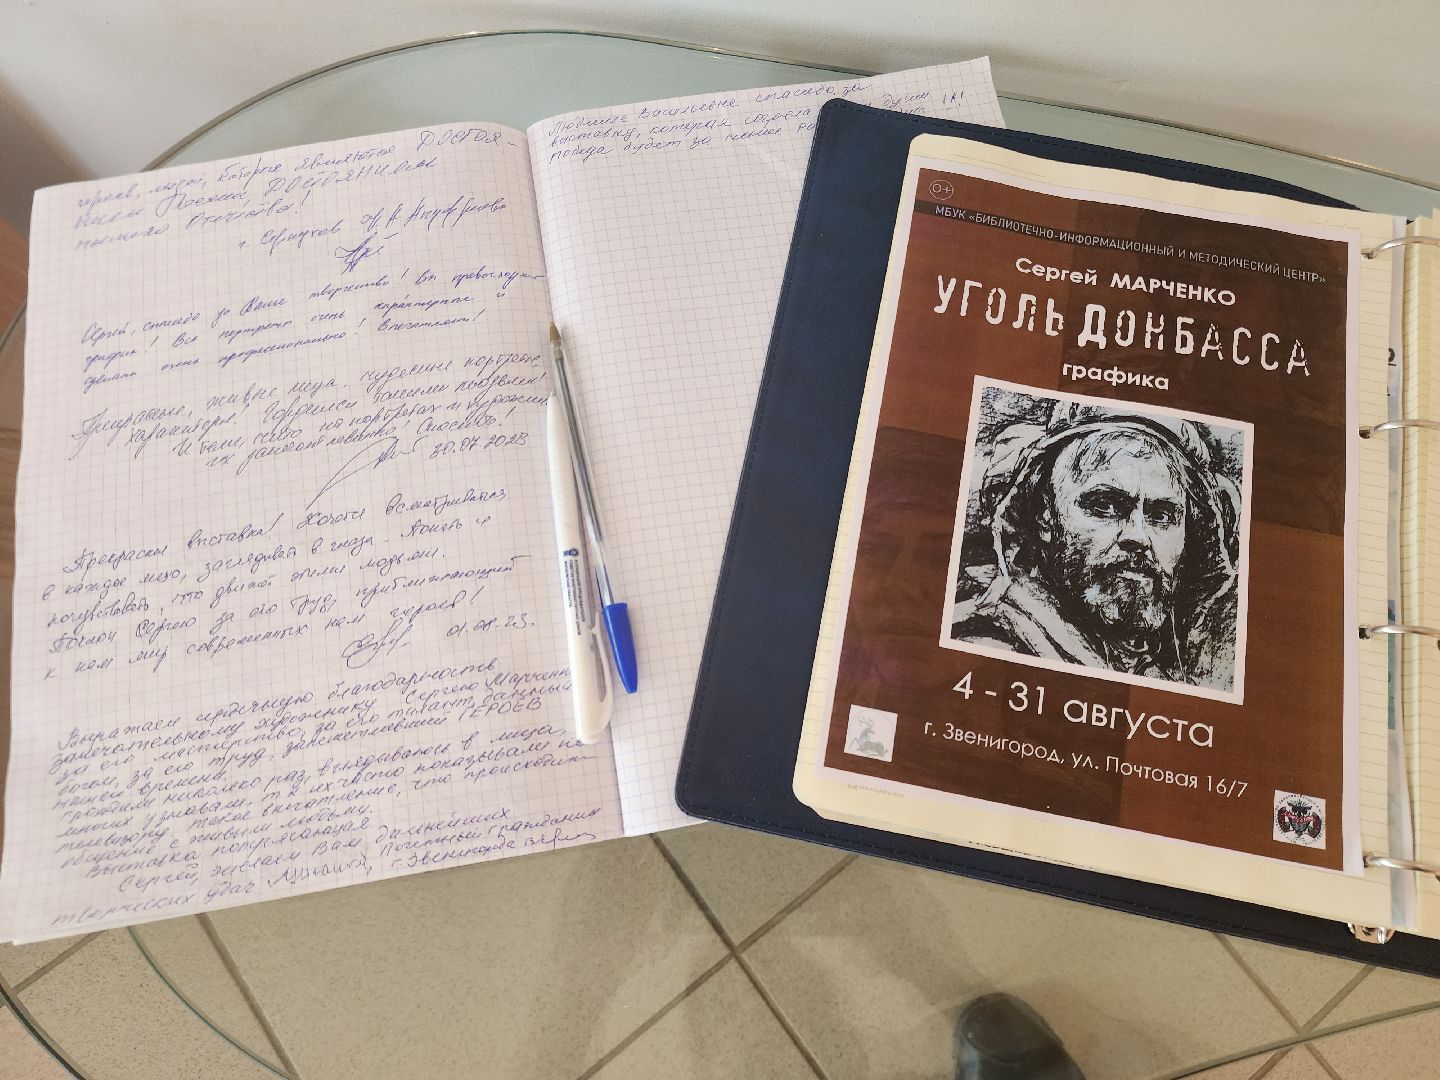 героев, людей, которые являются ДОСТОЯ-
нашего Отечества!
г. Серпухов
Сергей, спасибо за Ваше творчество! Вы превосходный
график!! Все портреты очень характерные и
сделаны очень профессионально! Впечатляет!
живые лица, чудесные портреты,
характеры! Гордимся такими людьми!
И тем, что на портретах и художник
их запечатлевший! Спасибо!
30.07.2023
Прекрасная выставка! Хочется всматриваться
в каждое лицо, заглядывать в глаза. Понять и
почувствовать, что движет этими людьми.
Поклон Сергею за его труд, приближающий
к нам мир современных нам героев!
01.08.23.
Выражаем сердечную благодарность
замечательному художнику Сергею Марченко
за его мастерство, за его талант, данный
Богом, за его труд, запечатлевший ГЕРОЕВ
нашего времени.
Проходили несколько раз, вглядываясь в лица,
многих узнавали, т.к. их часто показывали по
телевизору. Такое впечатление, что происходит
общение с живыми людьми.
Выставка потрясающая.
Сергей, желаем Вам дальнейших
творческих удач Почетный гражданин
г. Звенигорода
Людмиле Васильевне спасибо за
выставку, которая
победа будет за
МБУК «БИБЛИОТЕЧНО-ИНФОРМАЦИОННЫЙ И МЕТОДИЧЕСКИЙ ЦЕНТР»
0+
Сергей МАРЧЕНКО
УГОЛЬ ДОНБАССА
графика
4 - 31 августа
г. Звенигород, ул. Почтовая 16/7